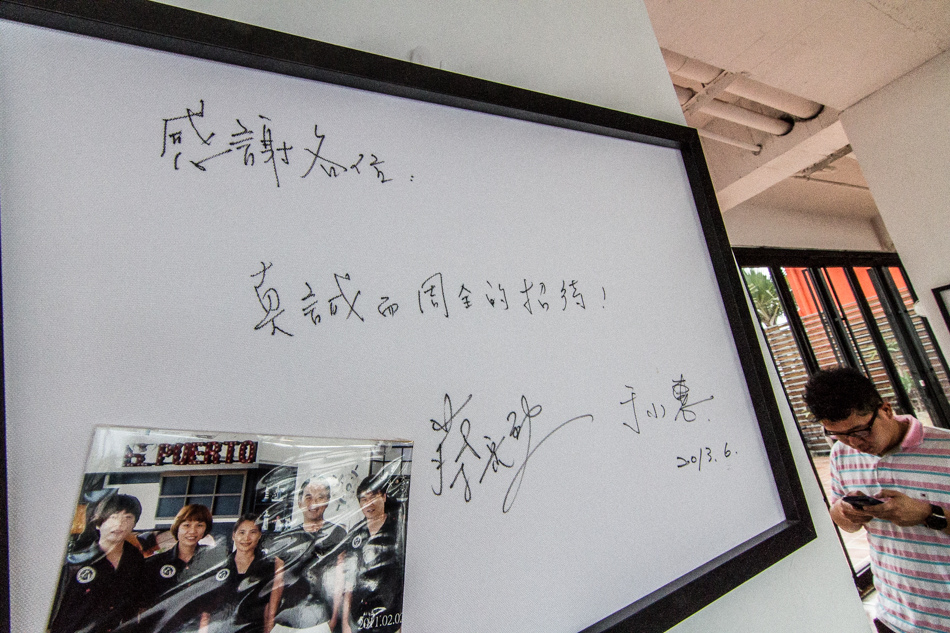 感謝各位.
真誠而周全的招待!
于小惠
2013.6.
PUERTO
2011.02.02